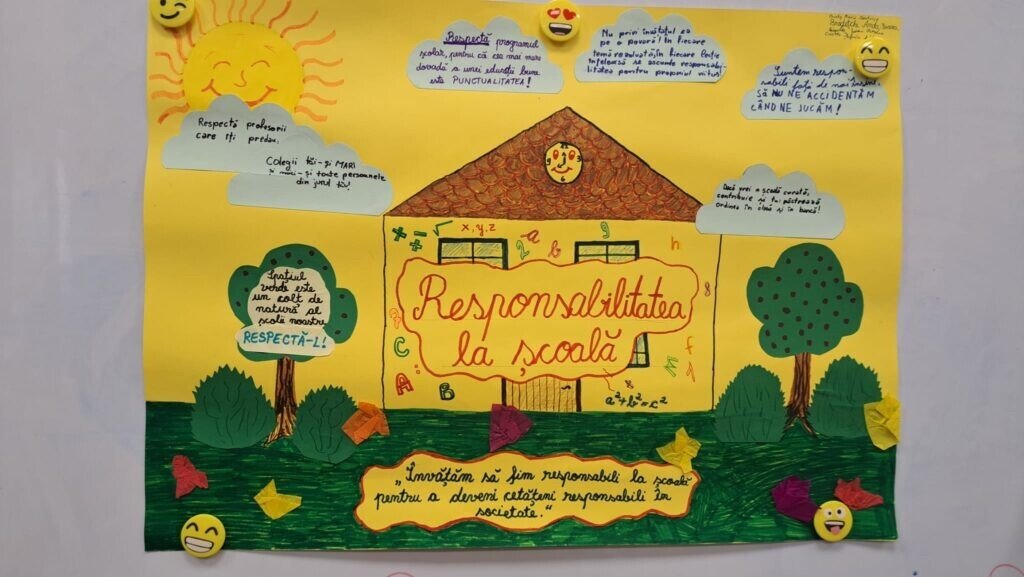 Respectă programul
școlar, pentru că cea mai mare
dovadă a unei educații bune
este PUNCTUALITATEA!
Nu privi învățatul ca
pe o povară! În fiecare
temă rezolvată, în fiecare lecție
înțeleasă se ascunde responsabi-
litatea pentru propriul viitor!
Suntem respon-
sabili față de noi înșine.
SĂ NU NE ACCIDENTĂM
CÂND NE JUCĂM!
Respectă profesorii
care îți predau.
Colegii tăi-și MARI
și mici-și toate persoanele
din jurul tău!
Dacă vrei o școală curată,
contribuie și tu păstrează
ordinea în clasă și în bancă!
x, y, z
a
b
2
g
h
8
Responsabilitatea
la școală
Spațiul
verde este
un colț de
natură al
școlii noastre
RESPECTĂ-L!
C
A
B
f
a²+b²=c²
„Învățăm să fim responsabili la școală
pentru a deveni cetățeni responsabili în
societate."